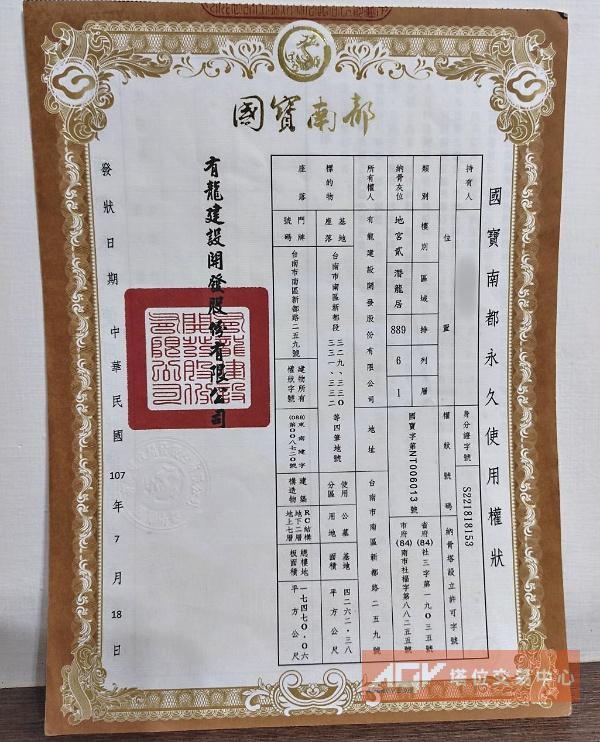 國寶南都
國寶南都永久使用權狀
持有人
身分證字號
S221818153
類別
位置
權狀號碼
納骨塔設立許可字號
樓別
區域
排
列
層
納骨灰位
地宮貳
潛龍居
889
6
1
國寶字第NT006013號
省府(84)社三字第一九○三五號
市府(84)南市社福字第八八二五五號
所有權人
有龍建設開發股份有限公司
地址
台南市南區新都路二五九號
標的物
座落
基地座落
台南市南區新都段
三二九、三三○
三三一、三三二
等四筆地號
使用分區
公墓用地
基地面積
四二六二．三八
平方公尺
門牌號碼
台南市南區新都路二五九號
建物所有權狀字號
(088)東南建字
第００八七二０號
建築構造物
RC結構
地下二層
地上七層
總樓地板面積
一七四七０．０六
平方公尺
有龍建設開發股份有限公司
有龍建設開發股份有限公司
發狀日期
中華民國107年7月18日
塔位交易中心